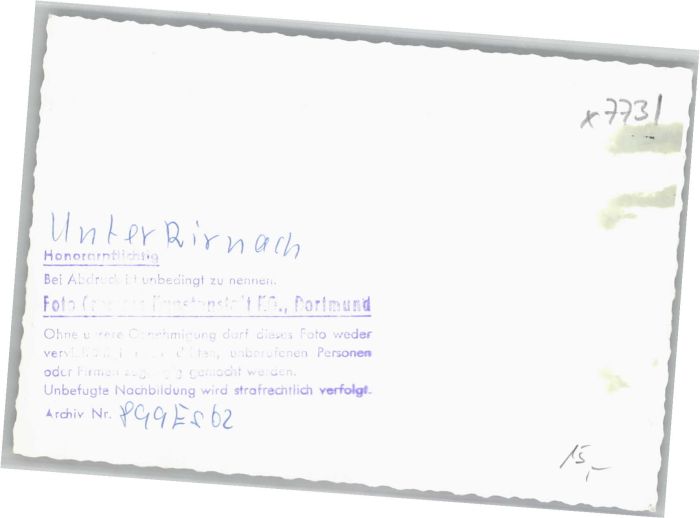 x7731
UnterKirnach
Honorarpflichtig
Bei Abdruck ist unbedingt zu nennen:
Foto Kunstanstalt KG., Dortmund
Ohne unsere Genehmigung darf dieses Foto weder
unberufenen Personen
oder Firmen zugängig gemacht werden.
Unbefugte Nachbildung wird strafrechtlich verfolgt.
Archiv Nr. 899Es62
15,-